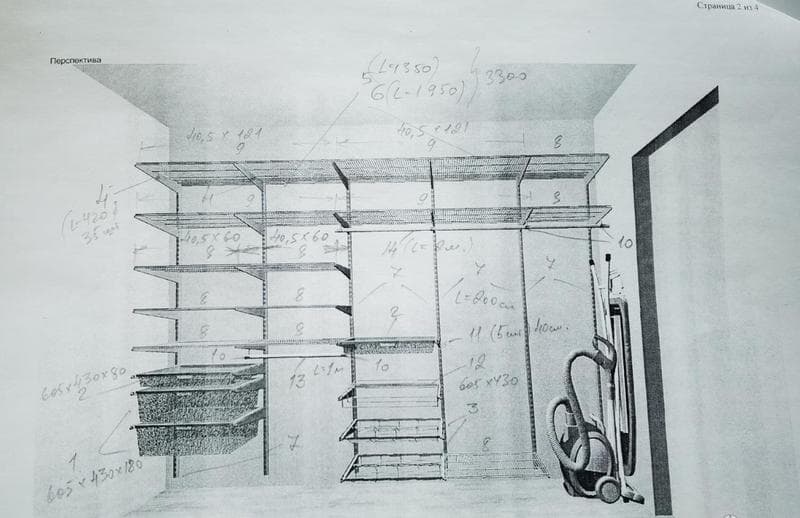 Страница 2 из 4
Перспектива
5 (L=1350)
6 (L=1950)
3300
40,5 x 121
9
40,5 x 121
9
8
4
9
9
8
40,5x60
8
40,5x60
8
14 (L=2м.)
10
7
7
7
8
8
L=200см
8
8
2
11 (5шт) 40см.
10
13
L=1м
10
12
605x430
605x430x80
2
3
1
605x430x180
7
8